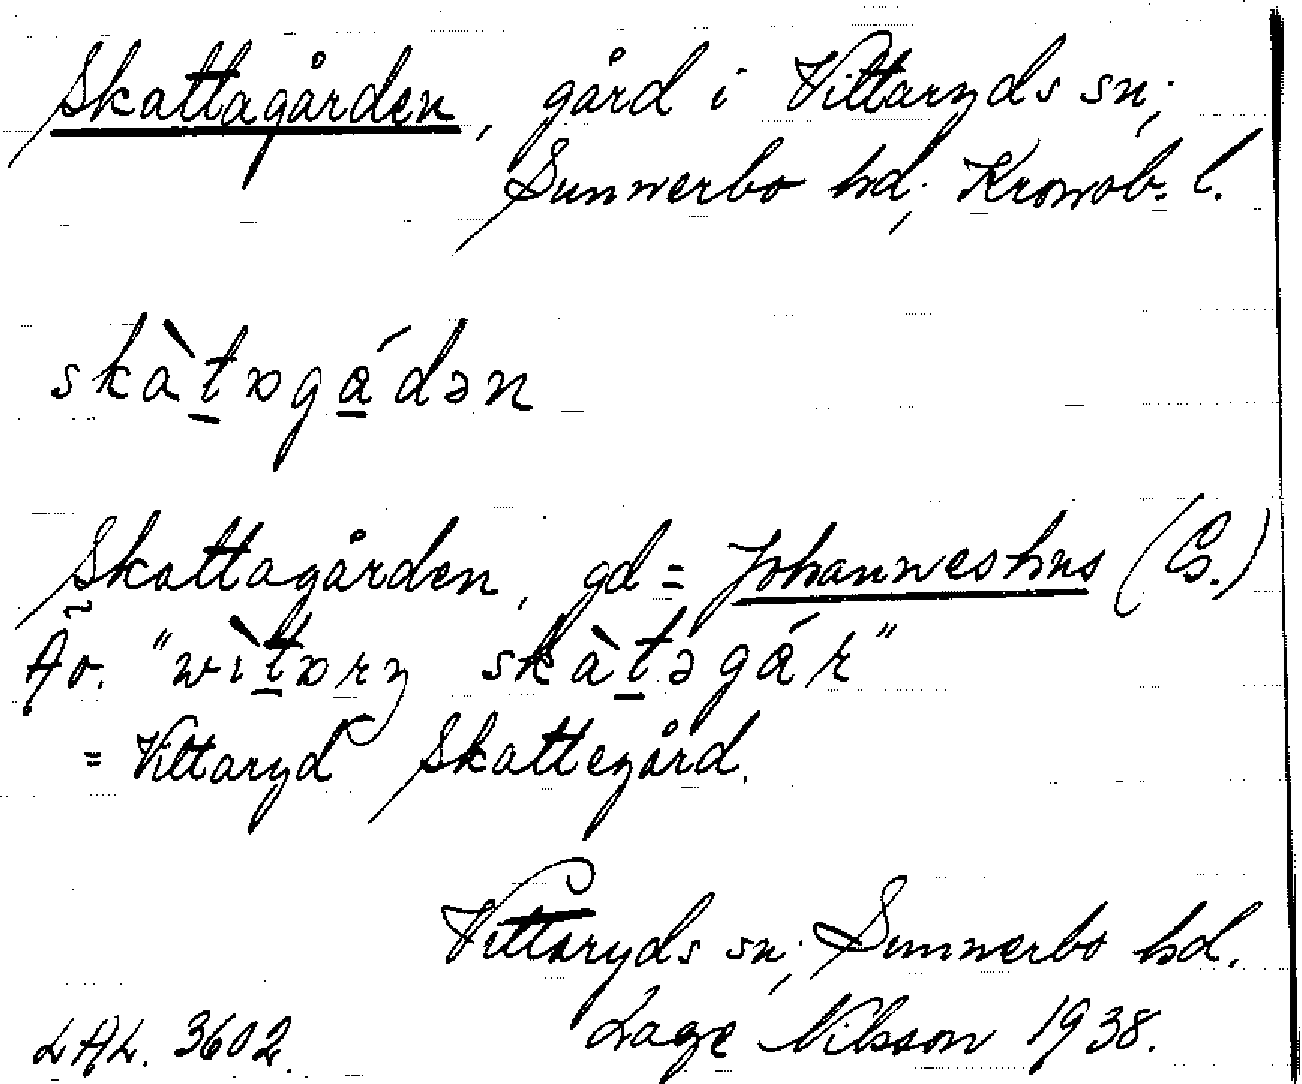 Skattagården, gård i Vittaryds sn;
Sunnerbo hd; Kronob. l.
skàt̠ɒgá̠dən
Skattagården, gd = Johanneshus (G.)
Äv. "wìt̠ɒry skàt̠əgár"
= Vittaryd Skattegård.
Vittaryds sn; Sunnerbo hd.
LAL. 3602. Lage Nilsson 1938.